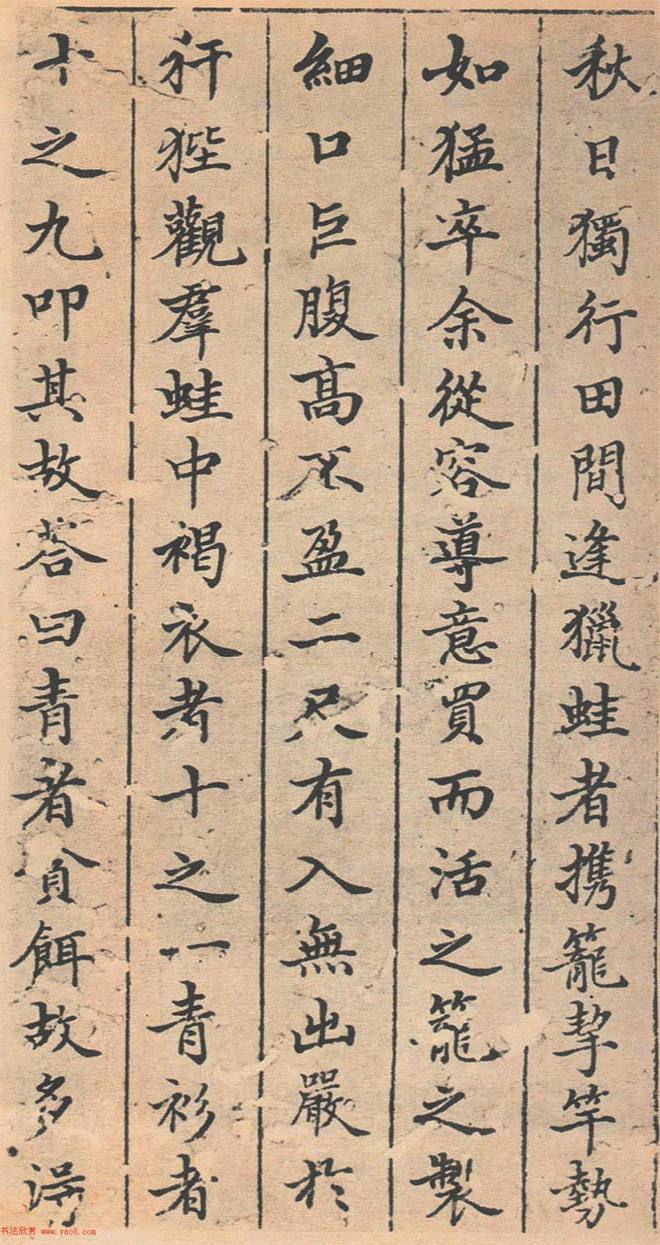 秋日獨行田間逢獵蛙者携籠挈竿勢
如猛卒余從容導意買而活之籠之製
細口巨腹高不盈二尺有入無出嚴於
犴狴觀羣蛙中褐衣者十之一青衫者
十之九叩其故荅曰青者貪餌故多得
书法欣赏 www.yac8.com